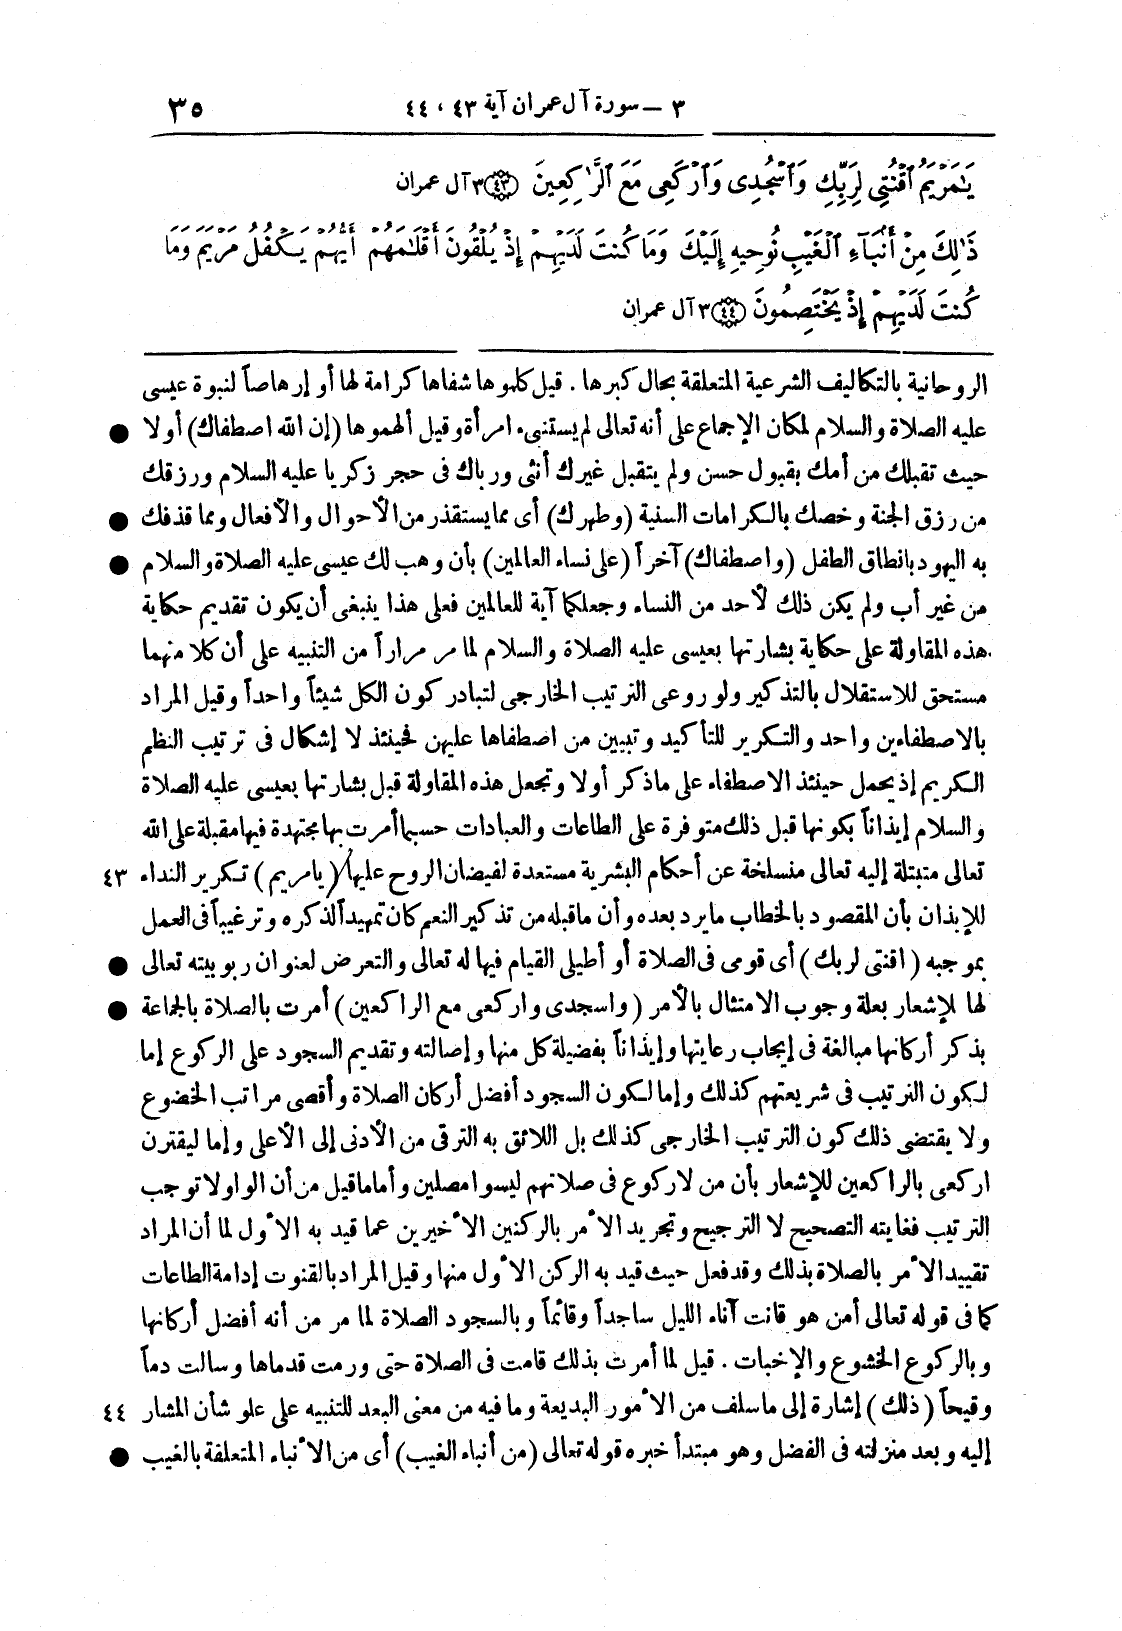 ٣ – سورة آل عمران آية ٤٣ ، ٤٤ ٣٥
يَٰمَرْيَمُ ٱقْنُتِى لِرَبِّكِ وَٱسْجُدِى وَٱرْكَعِى مَعَ ٱلرَّٰكِعِينَ ﴿٤٣﴾ ٣ آل عمران
ذَٰلِكَ مِنْ أَنۢبَآءِ ٱلْغَيْبِ نُوحِيهِ إِلَيْكَ وَمَا كُنتَ لَدَيْهِمْ إِذْ يُلْقُونَ أَقْلَٰمَهُمْ أَيُّهُمْ يَكْفُلُ مَرْيَمَ وَمَا
كُنتَ لَدَيْهِمْ إِذْ يَخْتَصِمُونَ ﴿٤٤﴾ ٣ آل عمران
الروحانية بالتكاليف الشرعية المتعلقة بحال كبرها . قيل كلموها شفاها كرامة لها أو إرهاصاً لنبوة عيسى
عليه الصلاة والسلام لمكان الإجماع على أنه تعالى لم يستنبىء امرأة وقيل ألهموها (إن الله اصطفاك) أولا ●
حيث تقبلك من أمك بقبول حسن ولم يتقبل غيرك أنثى ورباك فى حجر زكريا عليه السلام ورزقك
من رزق الجنة وخصك بالكرامات السنية (وطهرك) أى مما يستقذر من الأحوال والأفعال ومما قذفك ●
به اليهود بانطاق الطفل (واصطفاك) آخراً (على نساء العالمين) بأن وهب لك عيسى عليه الصلاة والسلام ●
من غير أب ولم يكن ذلك لأحد من النساء وجعلكما آية للعالمين فعلى هذا ينبغى أن يكون تقديم حكاية
هذه المقاولة على حكاية بشارتها بعيسى عليه الصلاة والسلام لما مر مراراً من التنبيه على أن كلا منهما
مستحق للاستقلال بالتذكير ولو روعى الترتيب الخارجى لتبادر كون الكل شيئاً واحداً وقيل المراد
بالاصطفاءين واحد والتكرير للتأكيد وتبيين من اصطفاها عليهن فحينئذ لا إشكال فى ترتيب النظم
الكريم إذ يحمل حينئذ الاصطفاء على ماذكر أولا وتجعل هذه المقاولة قبل بشارتها بعيسى عليه الصلاة
والسلام إيذاناً بكونها قبل ذلك متوفرة على الطاعات والعبادات حسبما أمرت بها مجتهدة فيها مقبلة على الله
تعالى متبتلة إليه تعالى منسلخة عن أحكام البشرية مستعدة لفيضان الروح عليها (يا مريم) تكرير النداء ٤٣
للإيذان بأن المقصود بالخطاب ما يرد بعده وأن ماقبله من تذكير النعم كان تمهيداً لذكره وترغيباً فى العمل
بموجبه (اقنتى لربك) أى قومى فى الصلاة أو أطيلى القيام فيها له تعالى والتعرض لعنوان ربوبيته تعالى ●
لها للإشعار بعلة وجوب الامتثال بالأمر (واسجدى واركعى مع الراكعين) أمرت بالصلاة بالجماعة ●
بذكر أركانها مبالغة فى إيجاب رعايتها وإيذاناً بفضيلة كل منها وإصالته وتقديم السجود على الركوع إما
لكون الترتيب فى شريعتهم كذلك وإما لكون السجود أفضل أركان الصلاة وأقصى مراتب الخضوع
ولا يقتضى ذلك كون الترتيب الخارجى كذلك بل اللائق به الترقى من الأدنى إلى الأعلى وإما ليقترن
اركعى بالراكعين للإشعار بأن من لا ركوع فى صلاتهم ليسوا مصلين وأما ما قيل من أن الواو لا توجب
الترتيب فغايته التصحيح لا الترجيح وتجريد الأمر بالركنين الأخيرين عما قيد به الأول لما أن المراد
تقييد الأمر بالصلاة بذلك وقد فعل حيث قيد به الركن الأول منها وقيل المراد بالقنوت إدامة الطاعات
كما فى قوله تعالى أمن هو قانت آناء الليل ساجداً وقائماً وبالسجود الصلاة لما مر من أنه أفضل أركانها
وبالركوع الخشوع والإخبات . قيل لما أمرت بذلك قامت فى الصلاة حتى ورمت قدماها وسالت دماً
وقيحاً (ذلك) إشارة إلى ما سلف من الأمور البديعة وما فيه من معنى البعد للتنبيه على علو شأن المشار ٤٤
إليه وبعد منزلته فى الفضل وهو مبتدأ خبره قوله تعالى (من أنباء الغيب) أى من الأنباء المتعلقة بالغيب ●